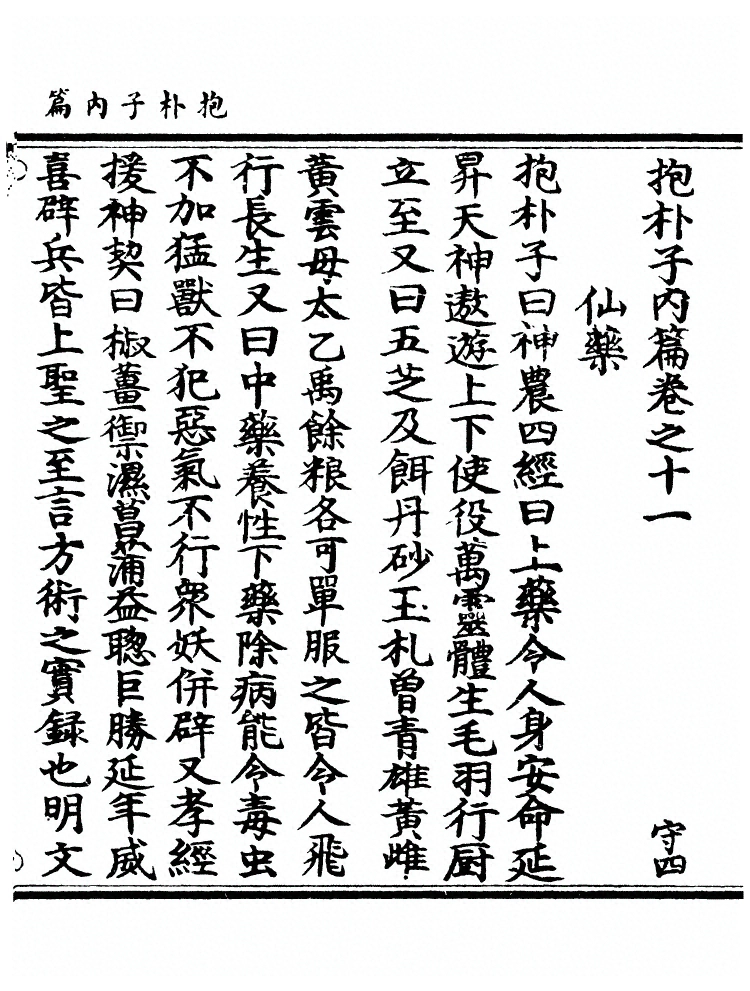 抱朴子内篇
抱朴子内篇卷之十一
守四
仙藥
抱朴子曰神農四經曰上藥令人身安命延
昇天神遨遊上下使役萬靈體生毛羽行厨
立至又曰五芝及餌丹砂玉札曾青雄黃雌
黃雲母太乙禹餘粮各可單服之皆令人飛
行長生又曰中藥養性下藥除病能令毒虫
不加猛獸不犯惡氣不行衆妖併辟又孝經
援神契曰椒薑禦濕菖蒲益聦巨勝延年威
喜辟兵皆上聖之至言方術之實録也明文